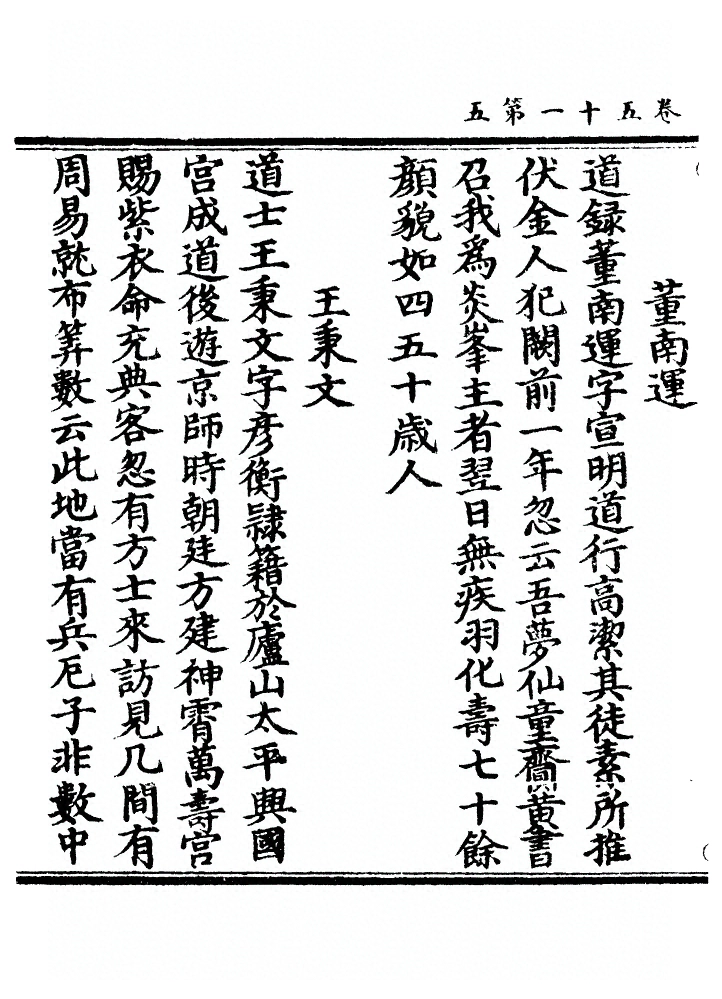 卷五十一第五
董南運
道錄董南運字宣明道行高潔其徒素所推
伏金人犯闕前一年忽云吾夢仙童齎黃書
召我爲炎峯主者翌日無疾羽化壽七十餘
顏貌如四五十歲人
王秉文
道士王秉文字彥衡隸籍於廬山太平興國
宮成道後遊京師時朝廷方建神霄萬壽宮
賜紫衣命充典客忽有方士來訪見几間有
周易就布筭數云此地當有兵厄子非數中